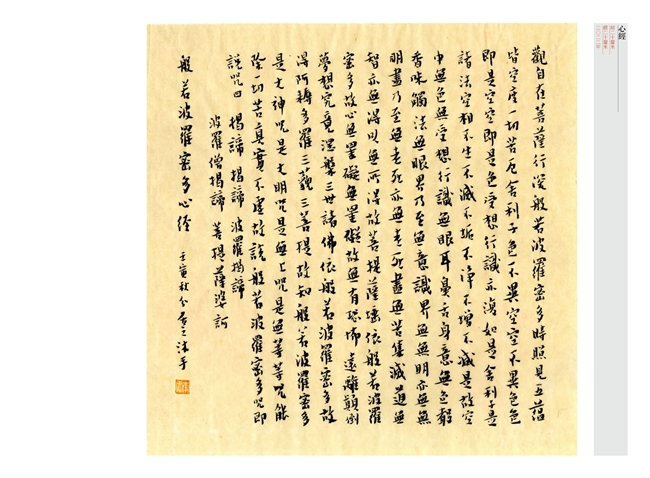 心經
觀自在菩薩行深般若波羅密多時照見五蘊
皆空度一切苦厄舍利子色不異空空不異色色
即是空空即是色受想行識亦復如是舍利子是
諸法空相不生不滅不垢不淨不增不減是故空
中無色無受想行識無眼耳鼻舌身意無色聲
香味觸法無眼界乃至無意識界無無明亦無無
明盡乃至無老死亦無老死盡無苦集滅道無
智亦無得以無所得故菩提薩埵依般若波羅
密多故心無罣礙無罣礙故無有恐怖遠離顛倒
夢想究竟涅槃三世諸佛依般若波羅密多故
得阿耨多羅三藐三菩提故知般若波羅密多
是大神咒是大明咒是無上咒是無等等咒能
除一切苦真實不虛故說般若波羅密多咒即
說咒曰 揭諦 揭諦 波羅揭諦
波羅僧揭諦 菩提薩婆訶
般若波羅密多心經
壬寅秋分